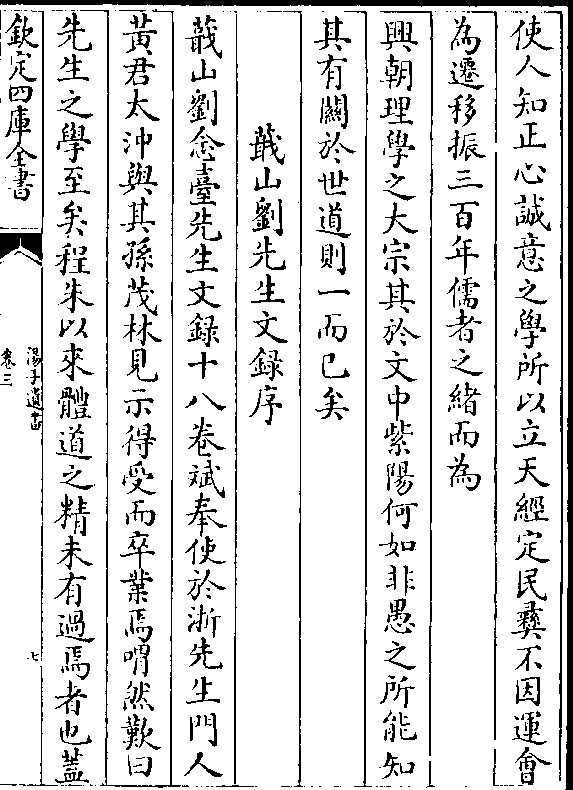 使人知正心誠意之學所以立天經定民彝不因運會
為遷移振三百年儒者之緒而為
興朝理學之大宗其於文中紫陽何如非愚之所能知
其有闗於世道則一而已矣
蕺山劉先生文録序
蕺山劉念臺先生文録十八卷斌奉使於浙先生門人
黃君太沖與其孫茂林見示得受而卒業焉喟然歎曰
先生之學至矣程朱以來體道之精未有過焉者也蓋
欽定四庫全書
湯子遺書
卷三
七